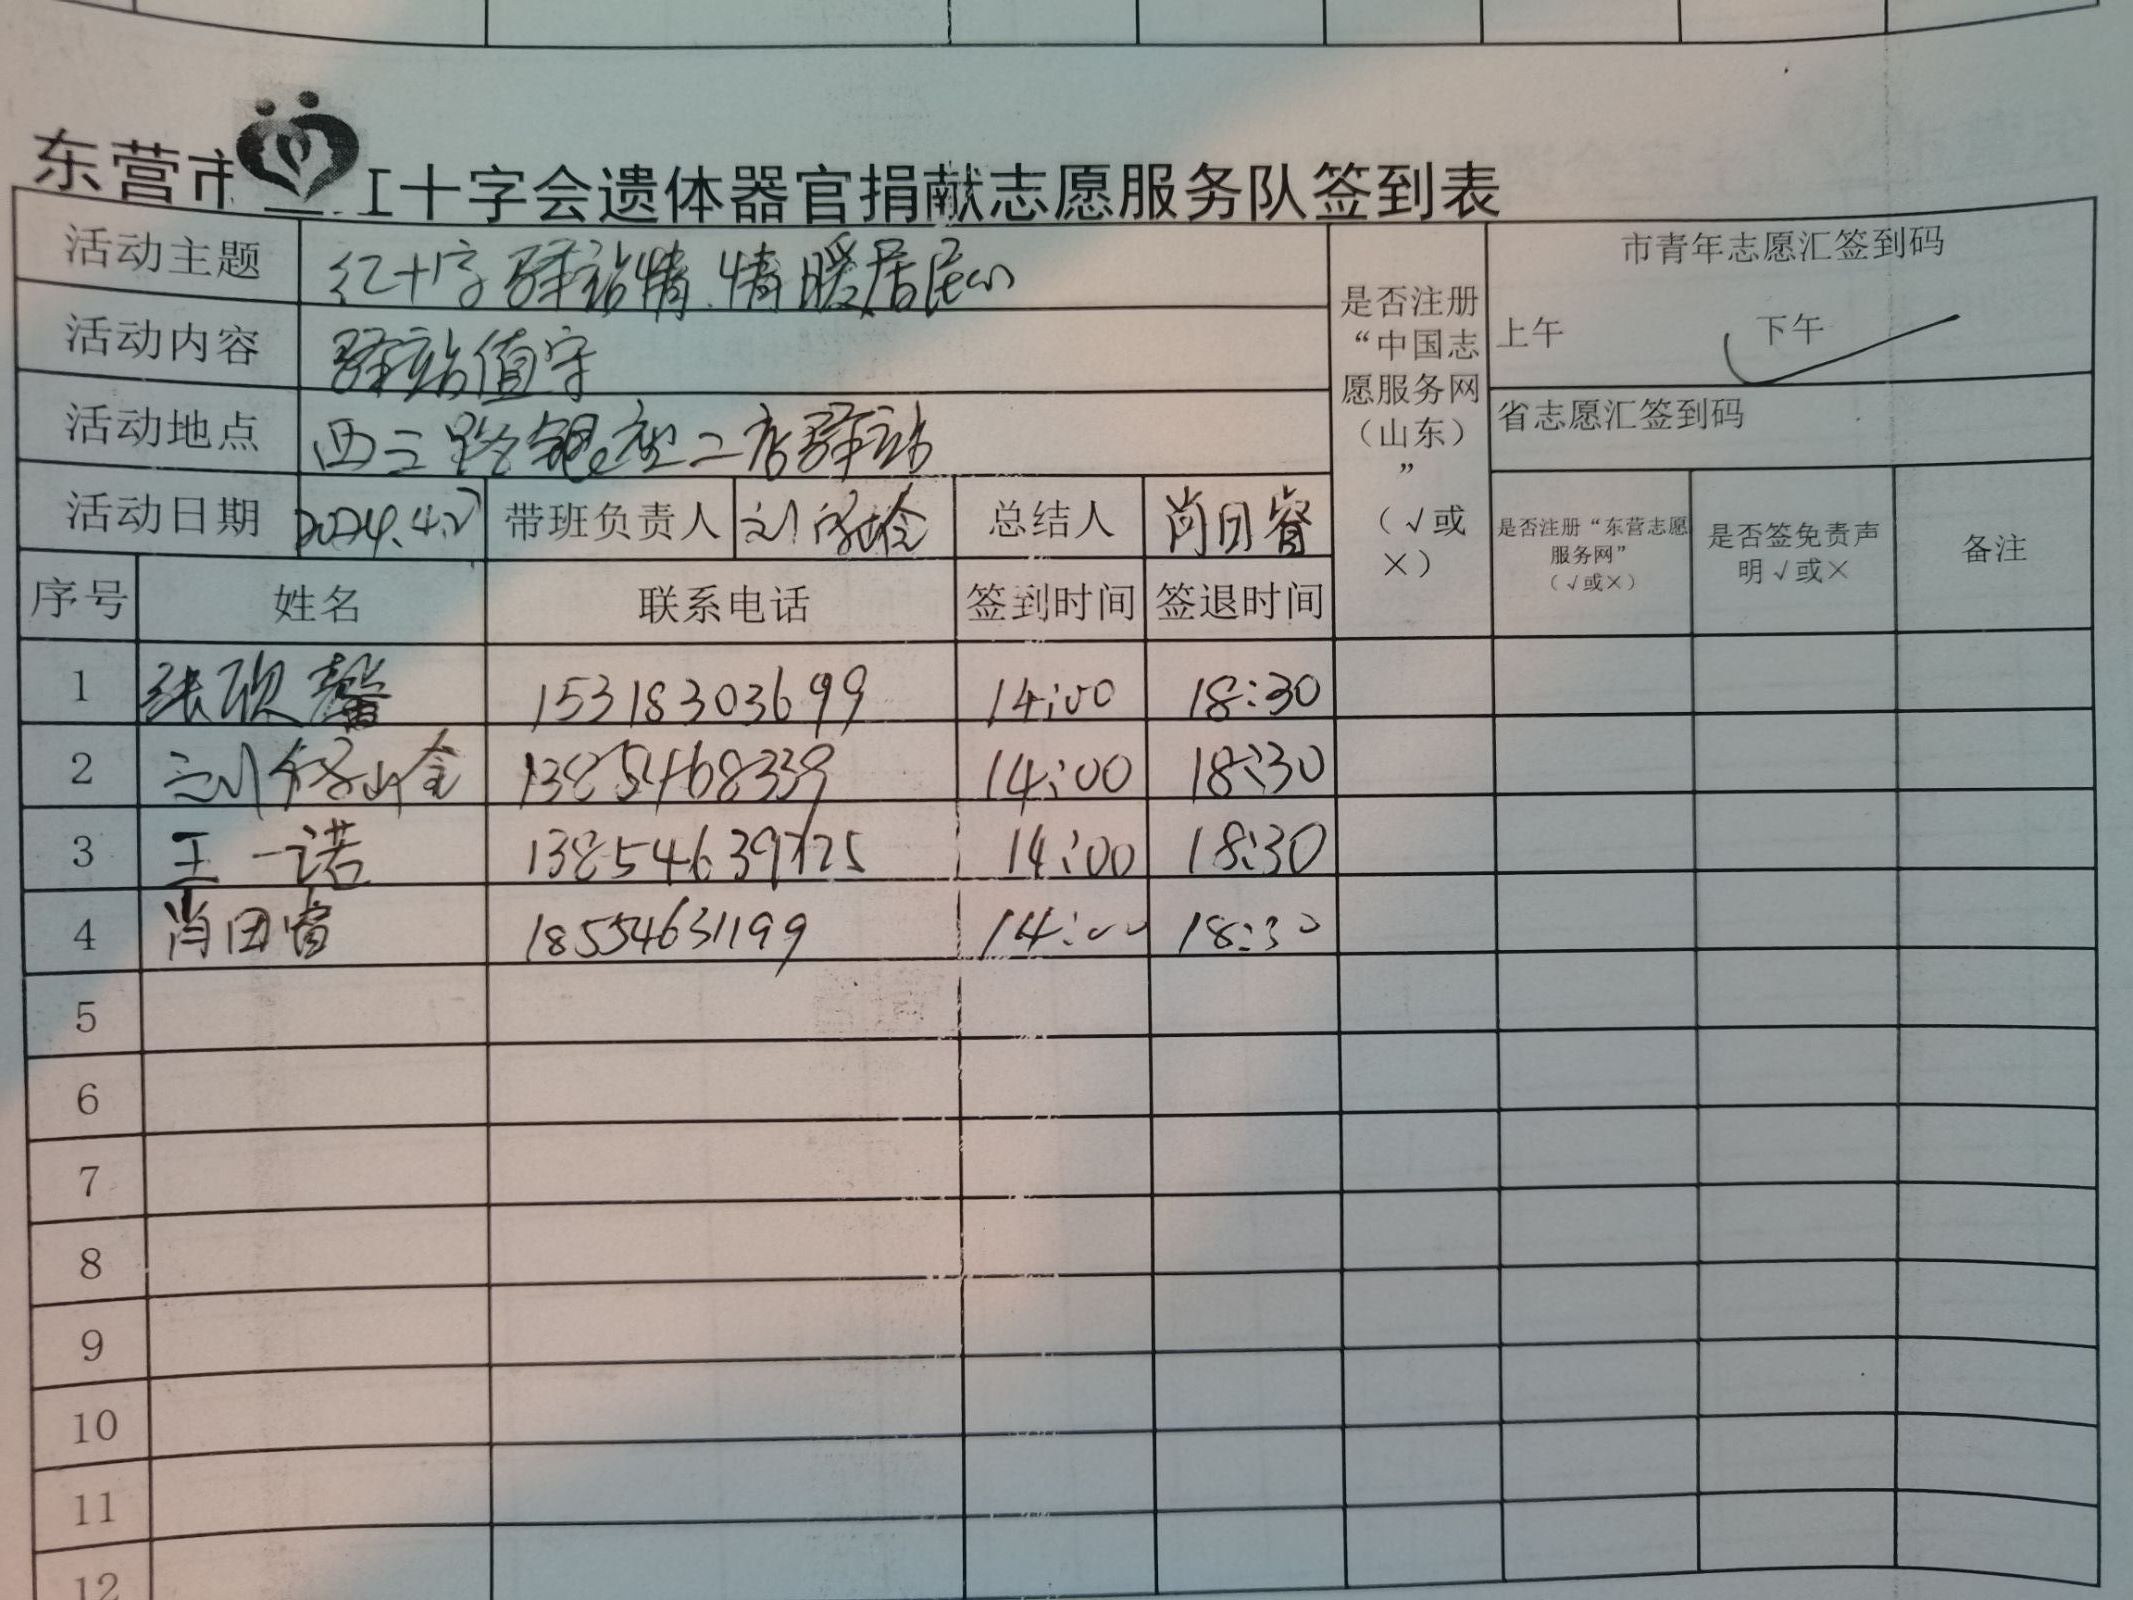 东营市 红十字会遗体器官捐献志愿服务队签到表
活动主题 红十字驿站情.情暖居民心
活动内容 驿站值守
活动地点 西三路银座二店驿站
活动日期 2024.4.27 带班负责人 刘 总结人 肖田睿
是否注册
“中国志
愿服务网
（山东）
”
（√或
×）
市青年志愿汇签到码
上午 下午 ✓
省志愿汇签到码
是否注册“东营志愿
服务网”
（√或×）
是否签免责声
明√或×
备注
序号 姓名 联系电话 签到时间 签退时间
1 张欣馨 15318303699 14:00 18:30
2 刘 13854468339 14:00 18:30
3 王一诺 13854639725 14:00 18:30
4 肖田睿 18554631199 14:00 18:30
5
6
7
8
9
10
11
12